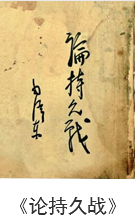 論持久戰
毛澤東
《论持久战》